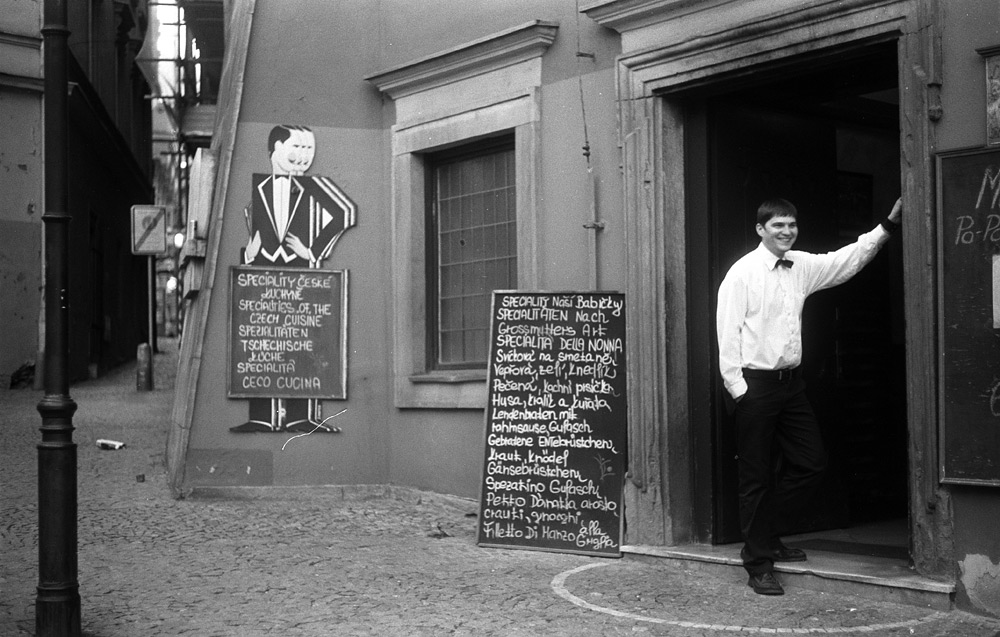 SPECIALITY ČESKÉ
KUCHYNĚ
SPECIALTIES OF THE
CZECH CUISINE
SPEZIALITÄTEN
TSCHECHISCHE
KÜCHE
SPECIALITÀ
CECO CUCINA
SPECIALITY Naší Babičky
SPECIALITÄTEN Nach
Grossmutters Art
SPECIALITÀ DELLA NONNA
Svíčková na smetaně,
Vepřová, zelí, knedlík
Pečená, kachní prsíčka
Husa, králík a kuřata
Lendenbraten mit
rahmsause, Gulasch
Gebratene Entebrüstchen,
Kraut, Knödel
Gänsebrüstchen
Spezatino Gulasch
Petto Danatra arosto
crauti, gnocchi
Filletto Di Manzo alla
Griglia
M
Pa-Pa